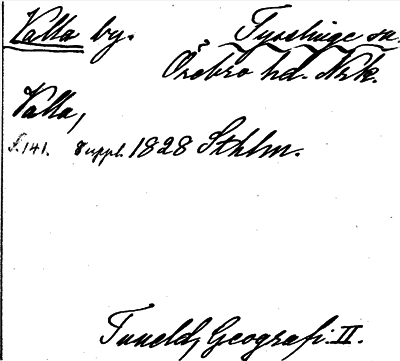 Valla by. Tysslinge sn.
Örebro hd. Nrk.
Valla,
S. 141. Suppl. 1828 Sthlm.
Tuneld, Geografi. II.